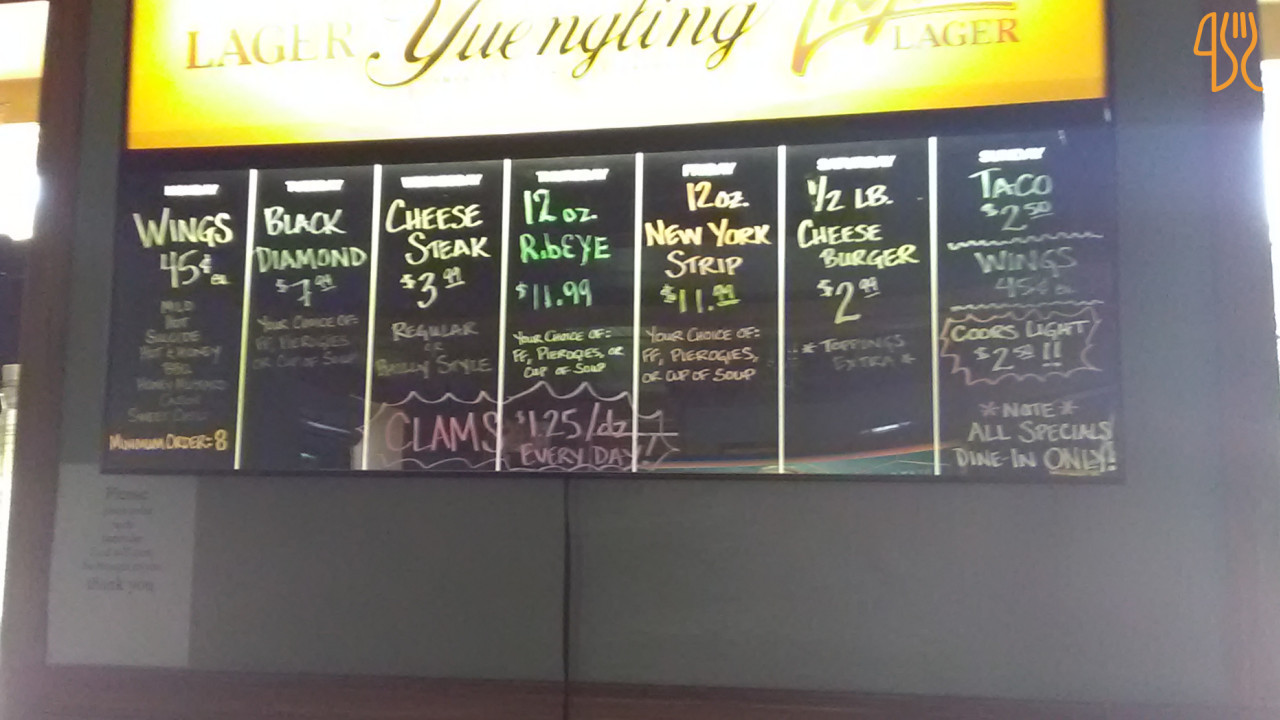 LAGER Yuengling LAGER
MONDAY
WINGS
45¢ ea.
MILD
HOT
SUICIDE
HOT & HONEY
BBQ
HONEY MUSTARD
CAJUN
SWEET CHILI
MINIMUM ORDER: 8
TUESDAY
BLACK
DIAMOND
$7.99
YOUR CHOICE OF:
FF, PIEROGIES
OR CUP OF SOUP
WEDNESDAY
CHEESE
STEAK
$3.99
REGULAR
OR
PHILLY STYLE
THURSDAY
12 oz.
RibEYE
$11.99
YOUR CHOICE OF:
FF, PIEROGIES, OR
CUP OF SOUP
FRIDAY
12 oz.
NEW YORK
STRIP
$11.99
YOUR CHOICE OF:
FF, PIEROGIES,
OR CUP OF SOUP
SATURDAY
1/2 LB.
CHEESE
BURGER
$2.99
* TOPPINGS
EXTRA *
SUNDAY
TACO
$2.50
WINGS
45¢ ea.
COORS LIGHT
$2.50 !!
* NOTE *
ALL SPECIALS
DINE-IN ONLY!
CLAMS $1.25/dz
EVERY DAY!
Please
thank you